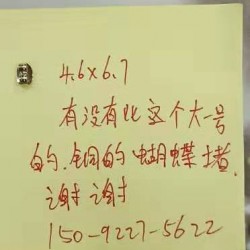 4.6×6.7
有没有比这个大一号
的.铜的蝴蝶堵.
谢谢
150-9227-5622